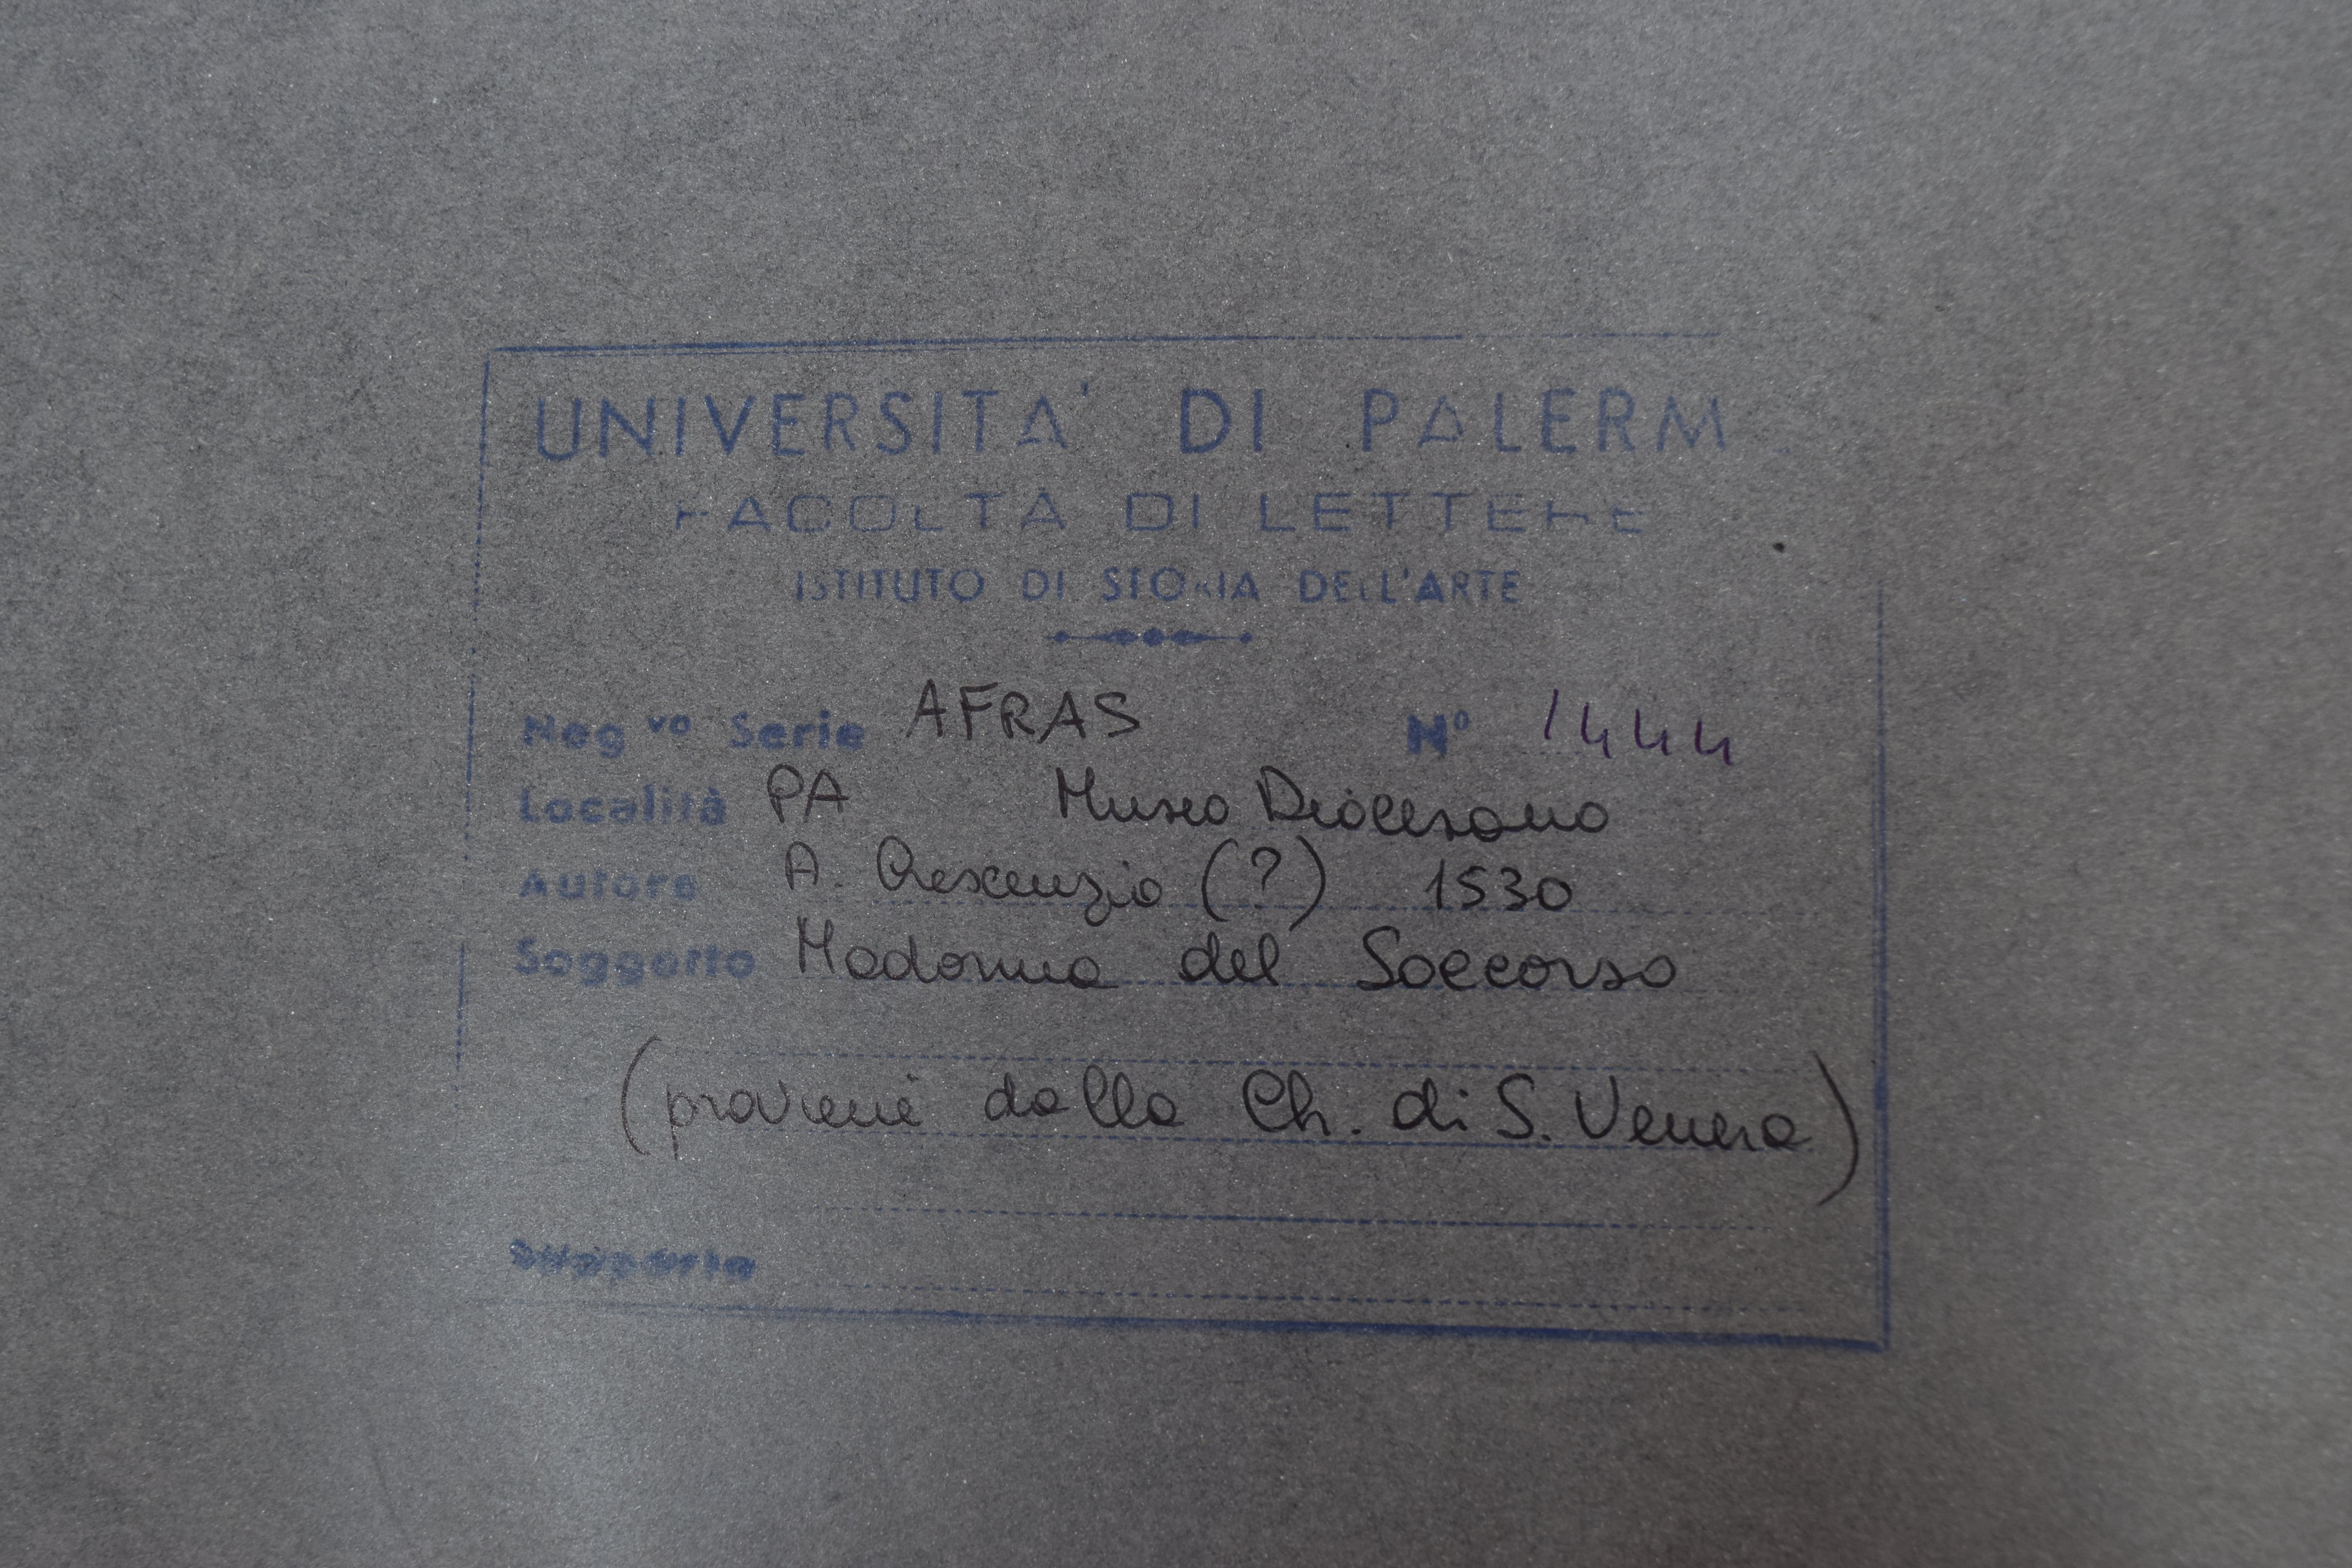 UNIVERSITA' DI PALERM
FACOLTÀ DI LETTERE
ISTITUTO DI STORIA DELL'ARTE
Neg vo Serie AFRAS N° 1444
Località PA Museo Diocesano
Autore A. Crescenzio (?) 1530
Soggetto Madonna del Soccorso
(proviene dalla Ch. di S. Venera)